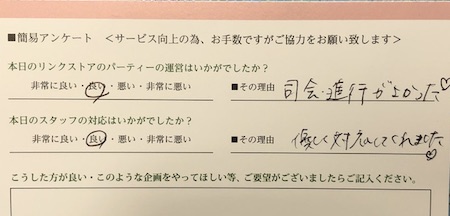 ■簡易アンケート　＜サービス向上の為、お手数ですがご協力をお願い致します＞
本日のリンクストアのパーティーの運営はいかがでしたか？
非常に良い・良い・悪い・非常に悪い　■その理由　司会・進行がよかった♡
本日のスタッフの対応はいかがでしたか？
非常に良い・良い・悪い・非常に悪い　■その理由　優しく対応してくれました♡
こうした方が良い・このような企画をやってほしい等、ご要望がございましたらご記入ください。